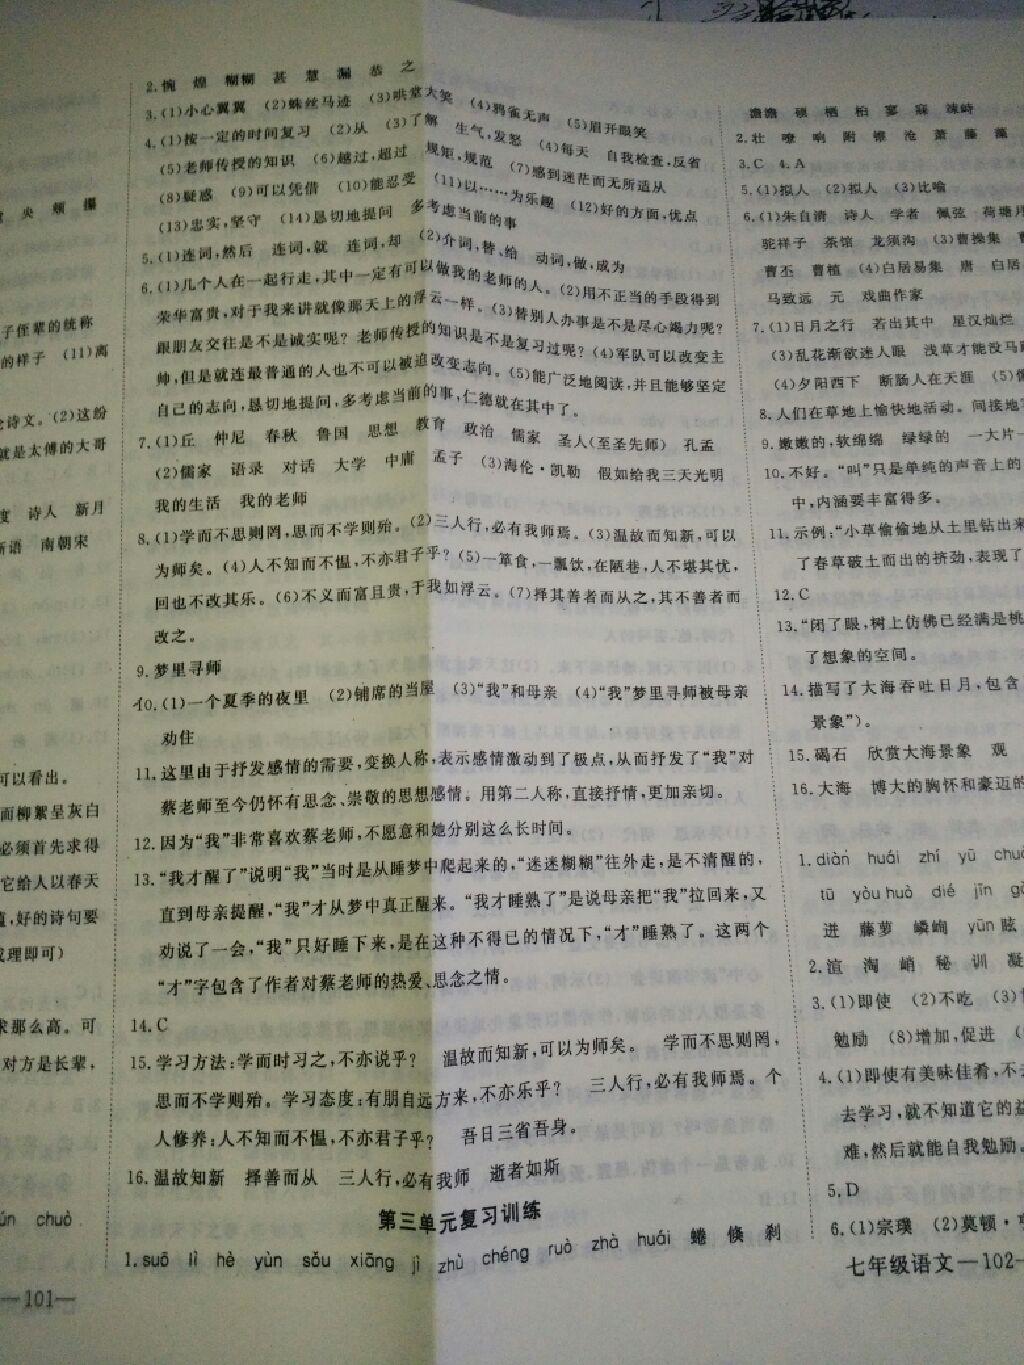 央 颊
子侄辈的统称
的样子 (11)离
诗文。(2)这纷
就是太傅的大哥
诗人 新月
南朝宋
可以看出。
而柳絮呈灰白
必须首先求得
它给人以春天
好的诗句要
理即可)
求那么高。可
对方是长辈,
chuò
—101—
2. 惋 煌 糊糊 甚 慧 漏 恭 之
3. (1)小心翼翼 (2)蛛丝马迹 (3)哄堂大笑 (4)鸦雀无声 (5)眉开眼笑
4. (1)按一定的时间复习 (2)从 (3)了解 生气,发怒 (4)每天 自我检查,反省
(5)老师传授的知识 (6)越过,超过 规矩,规范 (7)感到迷茫而无所适从
(8)疑惑 (9)可以凭借 (10)能忍受 (11)以……为乐趣 (12)好的方面,优点
(13)忠实,坚守 (14)恳切地提问 多考虑当前的事
5. (1)连词,然后 连词,就 连词,却 (2)介词,替、给 动词,做,成为
6. (1)几个人在一起行走,其中一定有可以做我的老师的人。(2)用不正当的手段得到
荣华富贵,对于我来讲就像那天上的浮云一样。(3)替别人办事是不是尽心竭力呢?
跟朋友交往是不是诚实呢? 老师传授的知识是不是复习过呢? (4)军队可以改变主
帅,但是就连最普通的人也不可以被迫改变志向。(5)能广泛地阅读,并且能够坚定
自己的志向,恳切地提问,多考虑当前的事,仁德就在其中了。
7. (1)丘 仲尼 春秋 鲁国 思想 教育 政治 儒家 圣人(至圣先师) 孔孟
(2)儒家 语录 对话 大学 中庸 孟子 (3)海伦·凯勒 假如给我三天光明
我的生活 我的老师
8. (1)学而不思则罔,思而不学则殆。(2)三人行,必有我师焉。(3)温故而知新,可以
为师矣。(4)人不知而不愠,不亦君子乎? (5)一箪食,一瓢饮,在陋巷,人不堪其忧,
回也不改其乐。(6)不义而富且贵,于我如浮云。(7)择其善者而从之,其不善者而
改之。
9. 梦里寻师
10. (1)一个夏季的夜里 (2)铺席的当屋 (3)“我”和母亲 (4)“我”梦里寻师被母亲
劝住
11. 这里由于抒发感情的需要,变换人称,表示感情激动到了极点,从而抒发了“我”对
蔡老师至今仍怀有思念、崇敬的思想感情。用第二人称,直接抒情,更加亲切。
12. 因为“我”非常喜欢蔡老师,不愿意和她分别这么长时间。
13. “我才醒了”说明“我”当时是从睡梦中爬起来的,“迷迷糊糊”往外走,是不清醒的,
直到母亲提醒,“我”才从梦中真正醒来。“我才睡熟了”是说母亲把“我”拉回来,又
劝说了一会,“我”只好睡下来,是在这种不得已的情况下,“才”睡熟了。这两个
“才”字包含了作者对蔡老师的热爱、思念之情。
14. C
15. 学习方法:学而时习之,不亦说乎? 温故而知新,可以为师矣。 学而不思则罔,
思而不学则殆。学习态度:有朋自远方来,不亦乐乎? 三人行,必有我师焉。个
人修养:人不知而不愠,不亦君子乎? 吾日三省吾身。
16. 温故知新 择善而从 三人行,必有我师 逝者如斯
第三单元复习训练
1. suō lì hè yùn sǒu xiāng jì zhù chéng ruò zhà huái 蜷 倏 刹
2. 壮 嘹 响 附 镶 沧 萧 藤 藻
3. C 4. A
5. (1)拟人 (2)拟人 (3)比喻
6. (1)朱自清 诗人 学者 佩弦 荷塘月
驼祥子 茶馆 龙须沟 (3)曹操集 曹
曹丕 曹植 (4)白居易集 唐 白居
马致远 元 戏曲作家
7. (1)日月之行 若出其中 星汉灿烂
(3)乱花渐欲迷人眼 浅草才能没马
(4)夕阳西下 断肠人在天涯 (5)
8. 人们在草地上愉快地活动。间接地
9. 嫩嫩的,软绵绵 绿绿的 一大片
10. 不好。“叫”只是单纯的声音上的
中,内涵要丰富得多。
11. 示例:“小草偷偷地从土里钻出来
了春草破土而出的挤劲,表现了
12. C
13. “闭了眼,树上仿佛已经满是桃
了想象的空间。
14. 描写了大海吞吐日月,包含
景象”)。
15. 碣石 欣赏大海景象 观
16. 大海 博大的胸怀和豪迈的
1. diàn huái zhí yū chuò
tū yòu huò dié jīn
进 藤萝 嶙峋 yūn 眩
2. 渲 淘 峭 秘 训 凝
3. (1)即使 (2)不吃 (3)
勉励 (8)增加,促进
4. (1)即使有美味佳肴,不去
去学习,就不知道它的益
难,然后就能自我勉励。
5. D
6. (1)宗璞 (2)莫顿·亨
七年级语文—102—